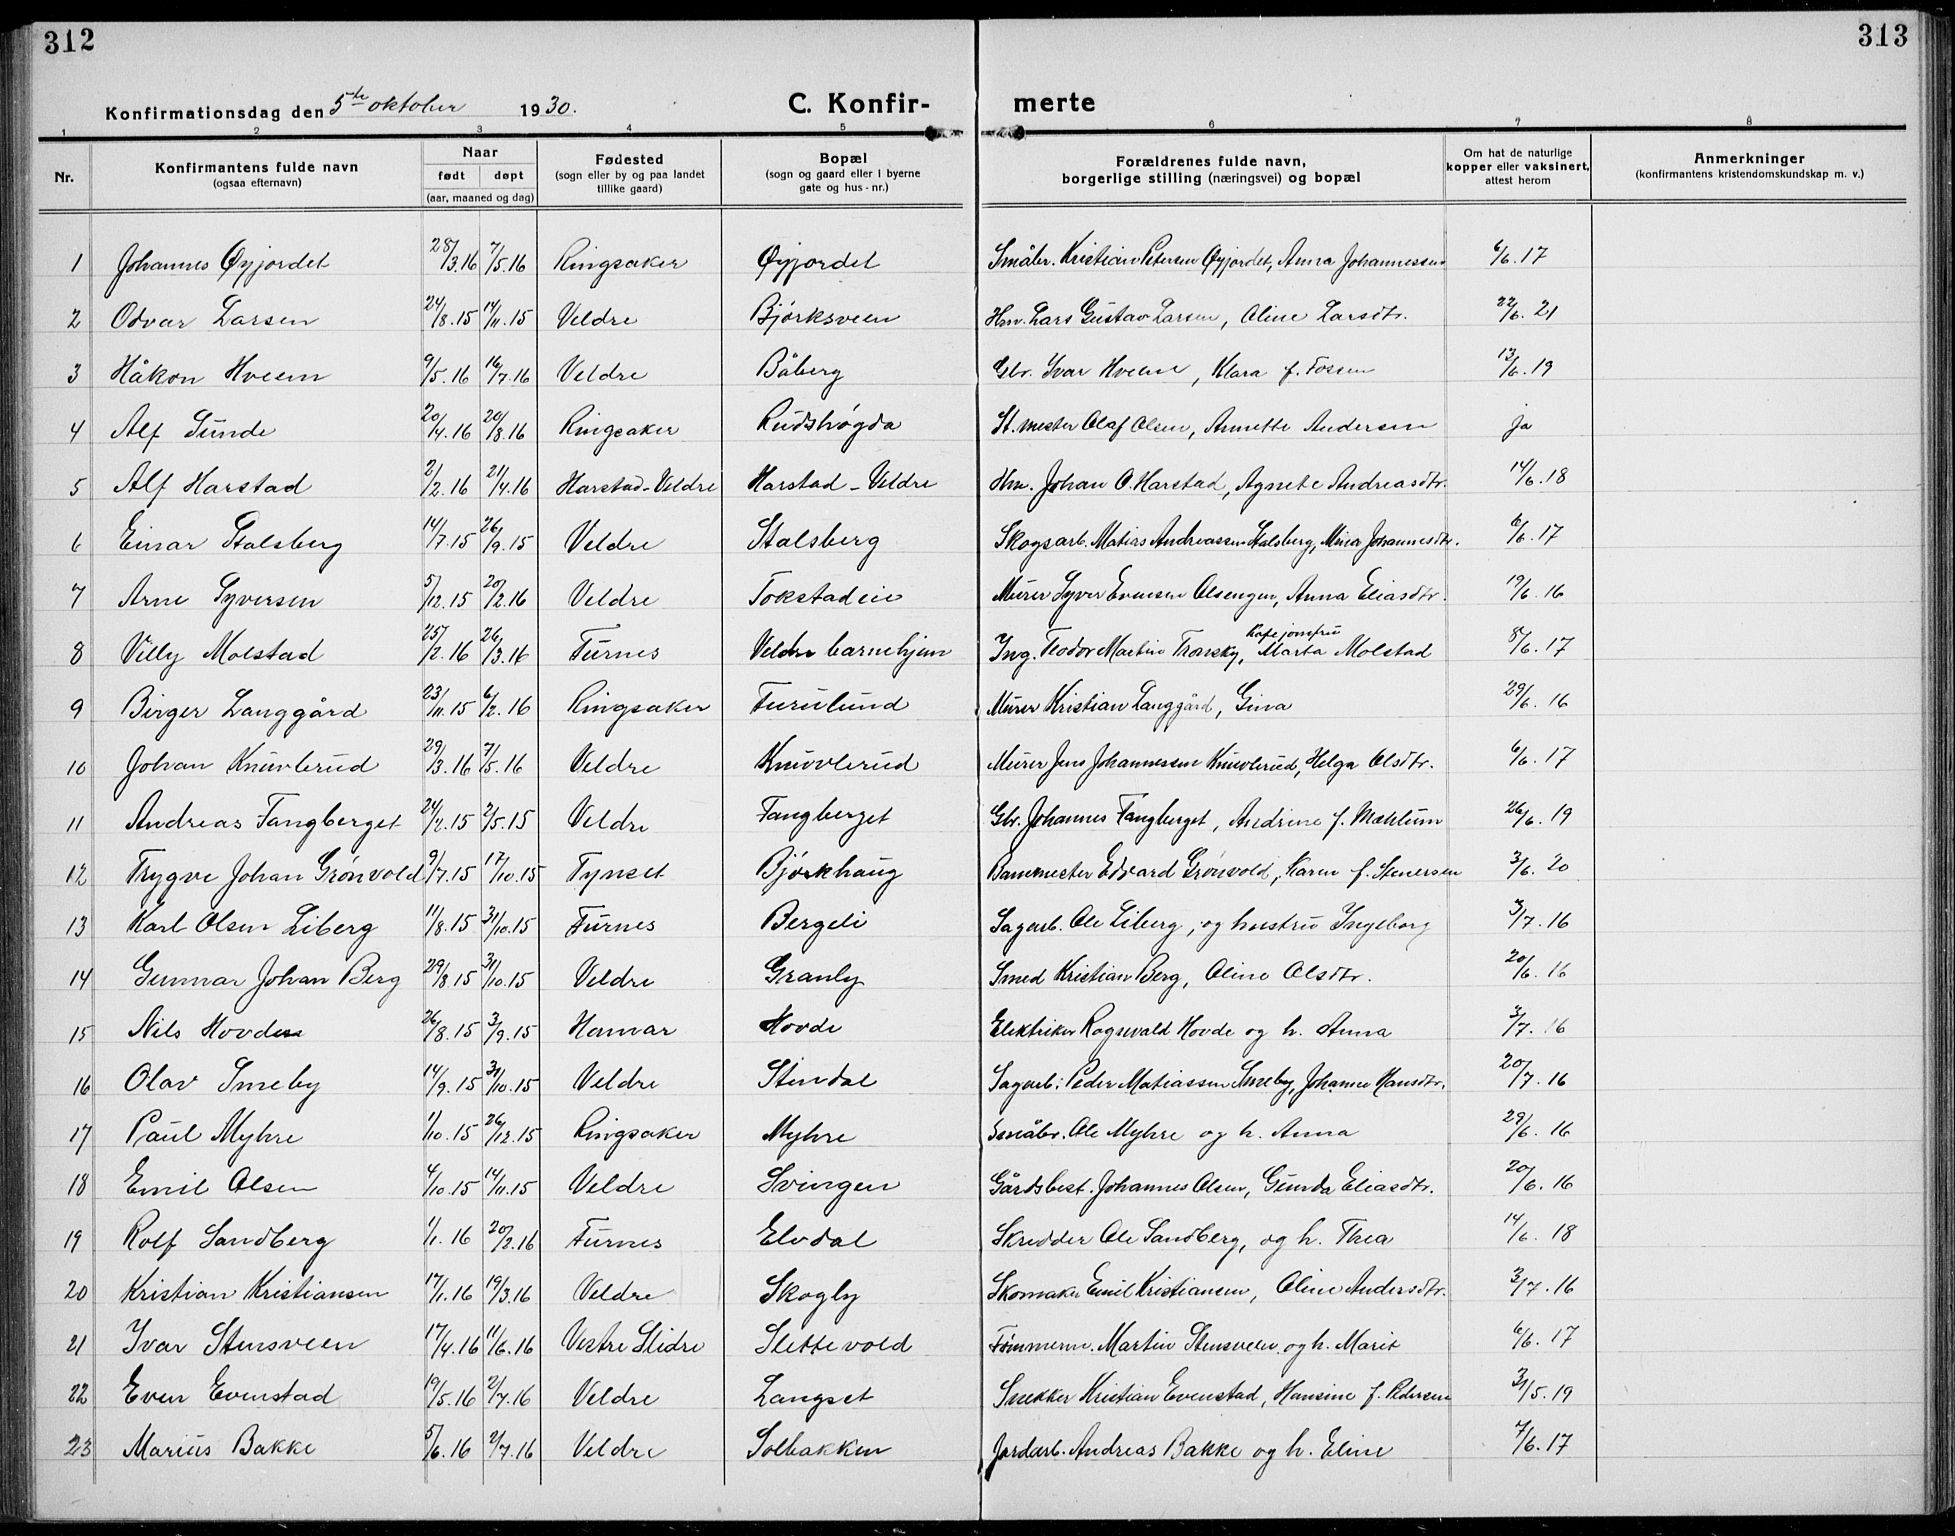 312
313
Konfirmationsdag den 5te oktober 1930.
C. Konfir-
merte
1 2 3 4 5 6 7 8
Nr.
Konfirmantens fulde navn
(ogsaa efternavn)
Naar
født døpt
(aar, maaned og dag)
Fødested
(sogn eller by og paa landet
tillike gaard)
Bopæl
(sogn og gaard eller i byerne
gate og hus-nr.)
Forældrenes fulde navn,
borgerlige stilling (næringsvei) og bopæl
Om hat de naturlige
kopper eller vaksinert,
attest herom
Anmerkninger
(konfirmantens kristendomskundskap m. v.)
1 Johannes Øyjordet 28/3.16 7/5.16 Ringsaker Øyjordet Småbr. Kristian Petersen Øyjordet, Anna Johannessen 6/6.17
2 Odvar Larsen 24/8.15 14/11.15 Veldre Bjørksveen Hm. Lars Gustav Larsen, Oline Larsdtr. 22/6.21
3 Håkon Hveem 9/5.16 16/7.16 Veldre Båberg Gbr. Ivar Hveem, Klara f. Fossen 13/6.19
4 Alf Sunde 20/4.16 20/8.16 Ringsaker Rudshøgda St.mester Olaf Olsen, Annette Andersen ja
5 Alf Harstad 2/2.16 21/4.16 Harstad-Veldre Harstad-Veldre Hm. Johan O. Harstad, Agnete Andreasdtr. 14/6.18
6 Einar Stalsberg 14/7.15 26/9.15 Veldre Stalsberg Skogsarb. Matias Andreassen Stalsberg, Mina Johannesdtr. 6/6.17
7 Arne Syversen 5/12.15 20/2.16 Veldre Tokstadeie Murer Syver Evensen Olsengen, Anna Eliasdtr. 19/6.16
8 Villy Molstad 25/2.16 26/3.16 Furnes Veldre barnehjem Ing. Teodor Martin Tronsky, Kafejomfru Marta Molstad 8/6.17
9 Birger Langgård 23/11.15 6/2.16 Ringsaker Furulund Murer Kristian Langgård, Gina 29/6.16
10 Johan Knuvlerud 29/3.16 7/5.16 Veldre Knuvlerud Murer Jens Johannessen Knuvlerud, Helga Olsdtr. 6/6.17
11 Andreas Fangberget 24/2.15 2/5.15 Veldre Fangberget Gbr. Johannes Fangberget, Andrine f. Mæhlum 26/6.19
12 Trygve Johan Grønvold 9/7.15 17/10.15 Tynset Bjørkhaug Banemester Edvard Grønvold, Karen f. Stenersen 3/6.20
13 Karl Olsen Liberg 11/8.15 31/10.15 Furnes Bergeli Sagarb. Ole Liberg, og hustru Ingeborg 3/7.16
14 Gunnar Johan Berg 29/8.15 31/10.15 Veldre Granly Smed Kristian Berg, Oline Olsdtr. 20/6.16
15 Nils Hovde 26/8.15 3/9.15 Hamar Hovde Elektriker Rognvald Hovde og h. Anna 3/7.16
16 Olav Smeby 14/9.15 31/10.15 Veldre Stendal Sagarb. Peder Matiassen Smeby, Johanne Hansdtr. 20/7.16
17 Paul Myhre 1/10.15 26/12.15 Ringsaker Myhre Småbr. Ole Myhre og h. Anna 29/6.16
18 Emil Olsen 4/10.15 14/11.15 Veldre Svingen Gårdsbest. Johannes Olsen, Gunda Eliasdtr. 20/6.16
19 Rolf Sandberg 1/1.16 20/2.16 Furnes Elvdal Skredder Ole Sandberg, og h. Thea 14/6.18
20 Kristian Kristiansen 17/1.16 19/3.16 Veldre Skogly Skomaker Emil Kristiansen, Oline Andersdtr. 3/7.16
21 Ivar Stensveen 17/4.16 11/6.16 Vestre Slidre Slettevold Tømmerm. Martin Stensveen og h. Marit 6/6.17
22 Even Evenstad 19/5.16 2/7.16 Veldre Langset Snekker Kristian Evenstad, Hansine f. Pedersen 31/5.19
23 Marius Bakke 5/6.16 2/7.16 Veldre Solbakken Jordarb. Andreas Bakke og h. Eline 7/6.17